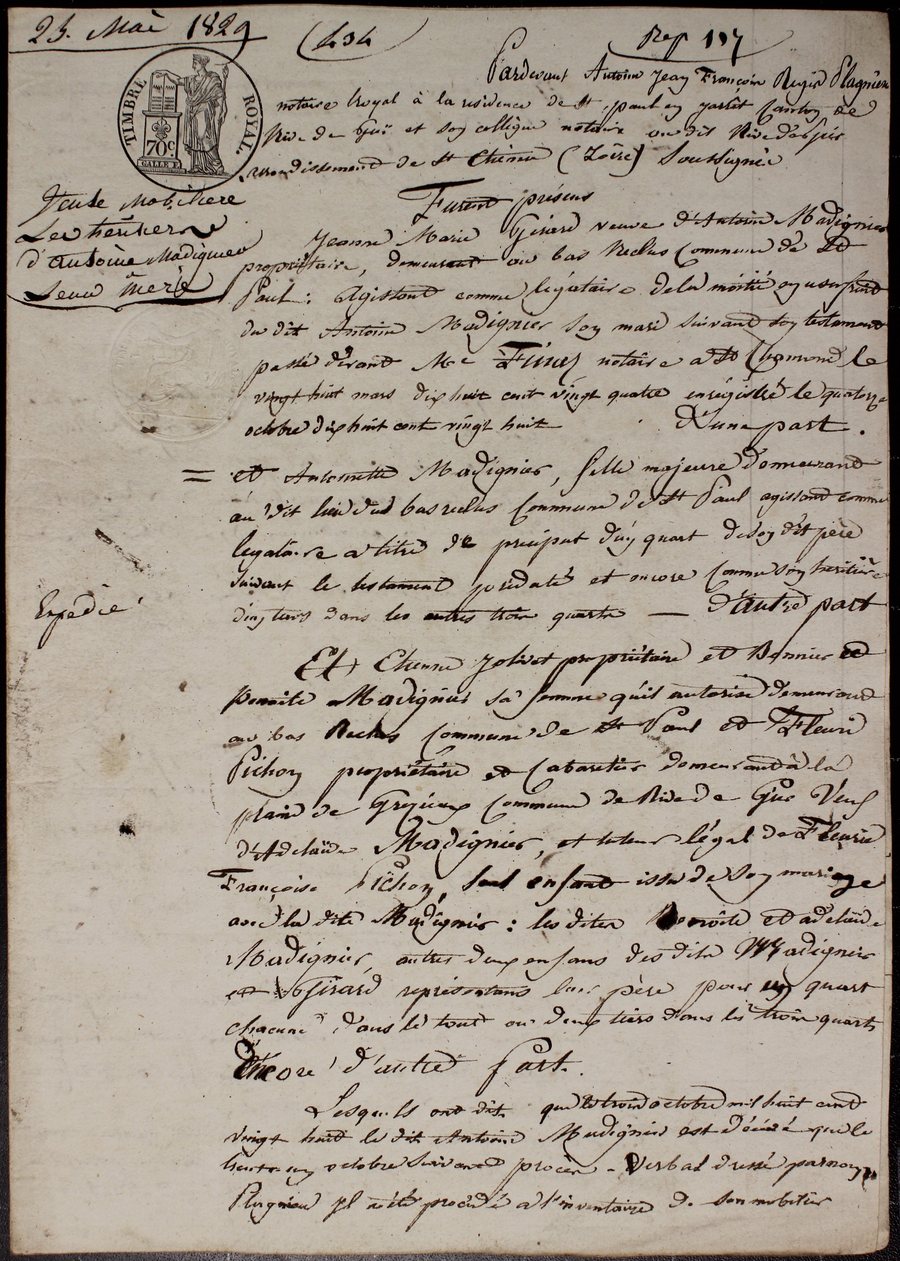 25. Mai 1829
(434)
Rep 117
TIMBRE ROYAL
70c.
Pardevant Antoine Jean François Régis Plagnieu
notaire Royal à la residence de St paul en jarêt Canton de
Rive de Gier et son collègue notaire au dit Rive de gier
arrondissement de St Etienne (Loire) Soussignés
Vente Mobiliere
Les héritiers
d'antoine Madignier
a Leur mere
Furent présens
Jeanne Marie Gérard veuve d'Antoine Madignier
propriétaire, demeurant au bas Reclus Commune de St
Paul; agissant comme légataire de la moitié en usufruit
du dit Antoine Madignier son mari suivant son testament
passé devant Me Finez notaire a St Chamond le
vingt huit mars dix huit cent vingt quatre enregistré le quatorze
octobre dix huit cent vingt huit d'une part.
= et Antoinette Madignier, fille majeure demeurant
au dit lieu du bas reclus Commune de St Paul agissant comme
légataire a titre de préciput d'un quart de son dit père
suivant le testament prédaté et encore comme son heritière
d'un tiers dans les autres trois quarts — d'autre part
Expedié
Et Etienne Jolivet propriétaire et
Benoite Madignier sa femme qu'il autorise demeurant
au bas Reclus Commune de St Paul et Fleuri
Pichon propriétaire et Cabaretier demeurant à la
plaine de Commune de Rive de Gier Veuf
d'Adelaïde Madignier, et tuteur légal de Fleurie
Françoise Pichon, seul enfant issu de son mariage
avec la dite Madignier: les dites Benoite et adelaïde
Madignier, autres deux enfans des dits Madignier
et Gérard représentans leur père pour un quart
chacune dans le tout ou deux tiers dans les trois quarts
Encore d'autre Part.
Lesquels ont dit que le trois octobre mil huit cent
vingt huit le dit Antoine Madignier est décédé que le
trente un octobre suivant procès-verbal dressé par nous
Plagnieu il a été procédé a l'inventaire de son mobilier